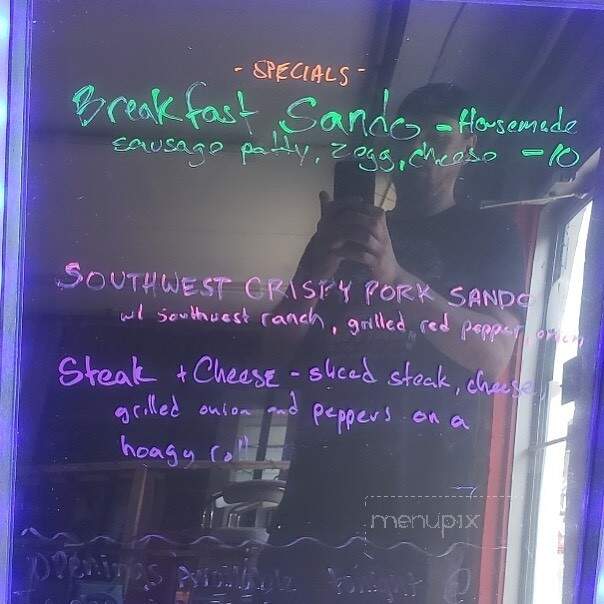 - SPECIALS -
Breakfast Sando - Housemade
sausage patty, 2 egg, cheese - 10
SOUTHWEST CRISPY PORK SANDO
w/ southwest ranch, grilled red pepper, onion
Steak + Cheese - sliced steak, cheese,
grilled onion and peppers on a
hoagy roll
menupix